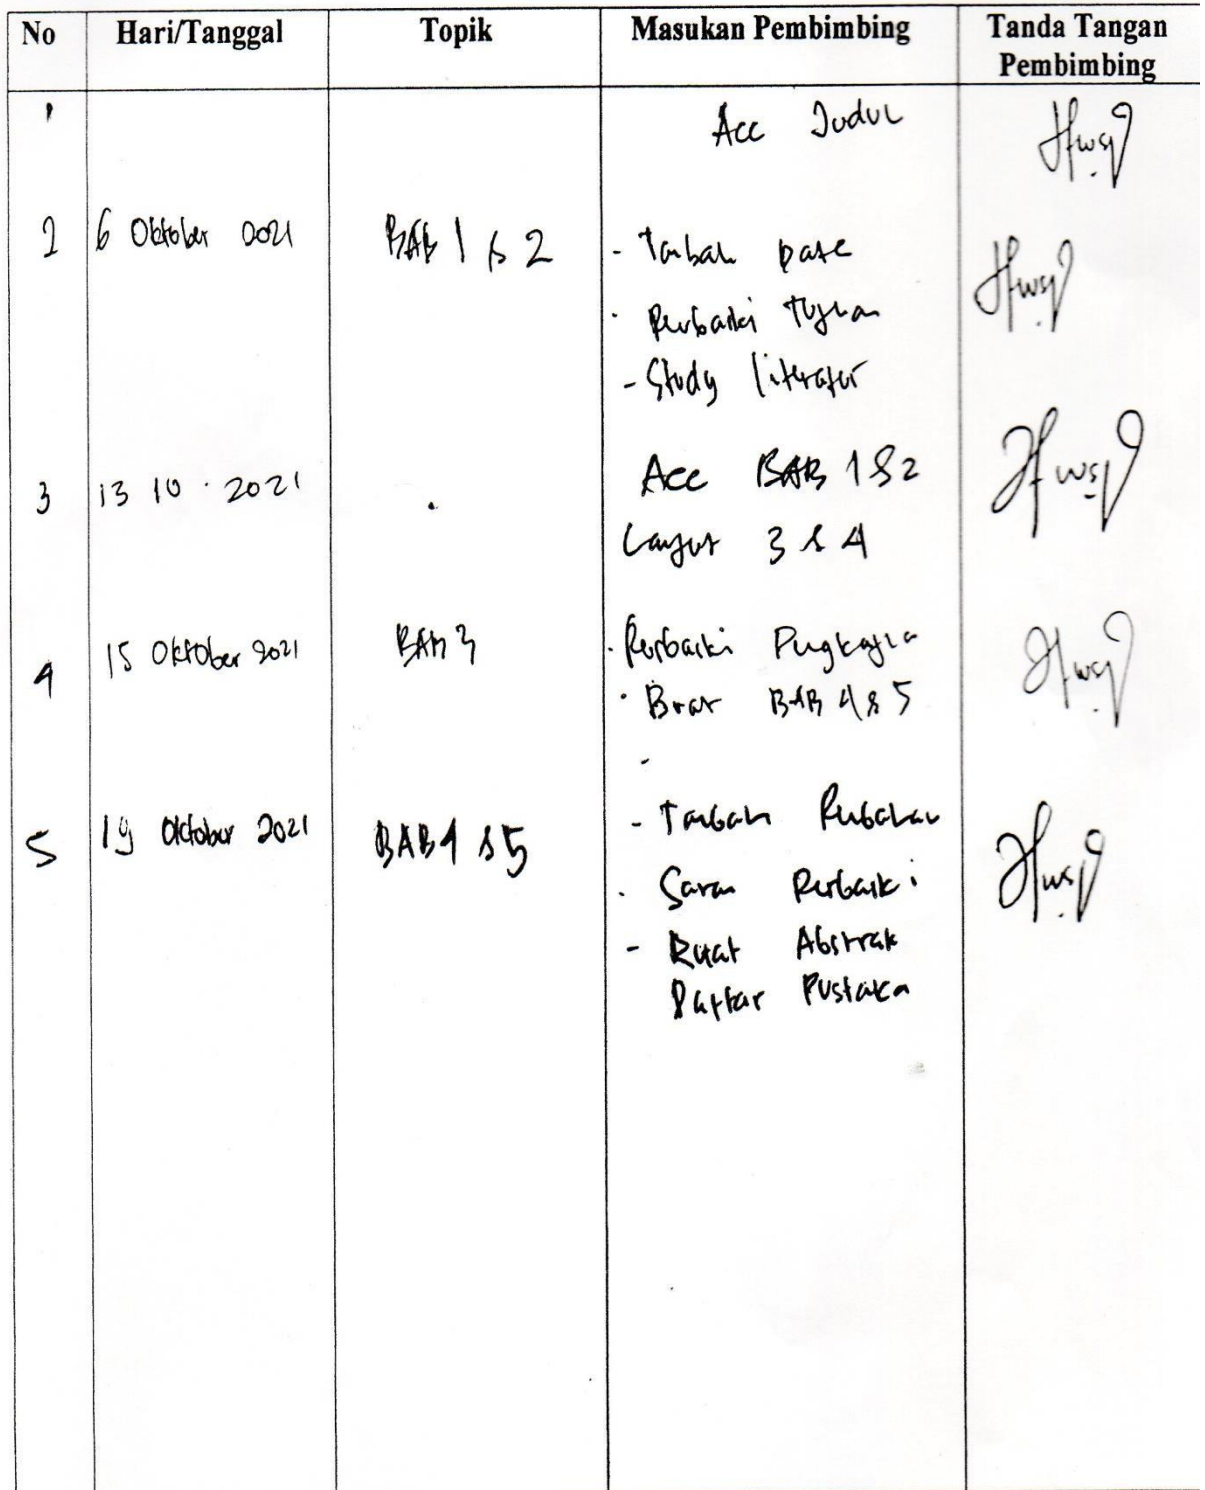 No Hari/Tanggal Topik Masukan Pembimbing Tanda Tangan Pembimbing
1 Acc Judul
2 6 Oktober 2021 BAB 1 & 2 - Tambah
- Perbaiki Tujuan
- Study literatur
3 13 10 . 2021 Acc BAB 1 & 2
Lanjut 3 & 4
4 15 Oktober 2021 BAB 3 - Perbaiki Pengkajian
- Buat BAB 4 & 5
-
5 19 Oktober 2021 BAB 4 & 5 - Tambah
- Saran Perbaiki
- Buat Abstrak
Daftar Pustaka